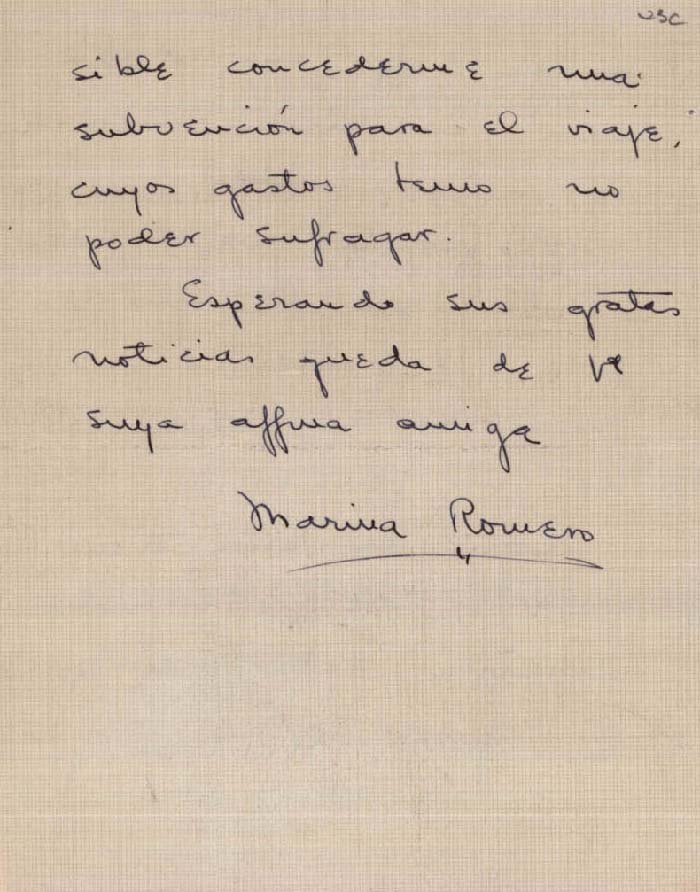 sible concederme una
subvención para el viaje,
cuyos gastos temo no
poder sufragar.
Esperando sus gratas
noticias queda de Vd
suya affma amiga
Marina Romero